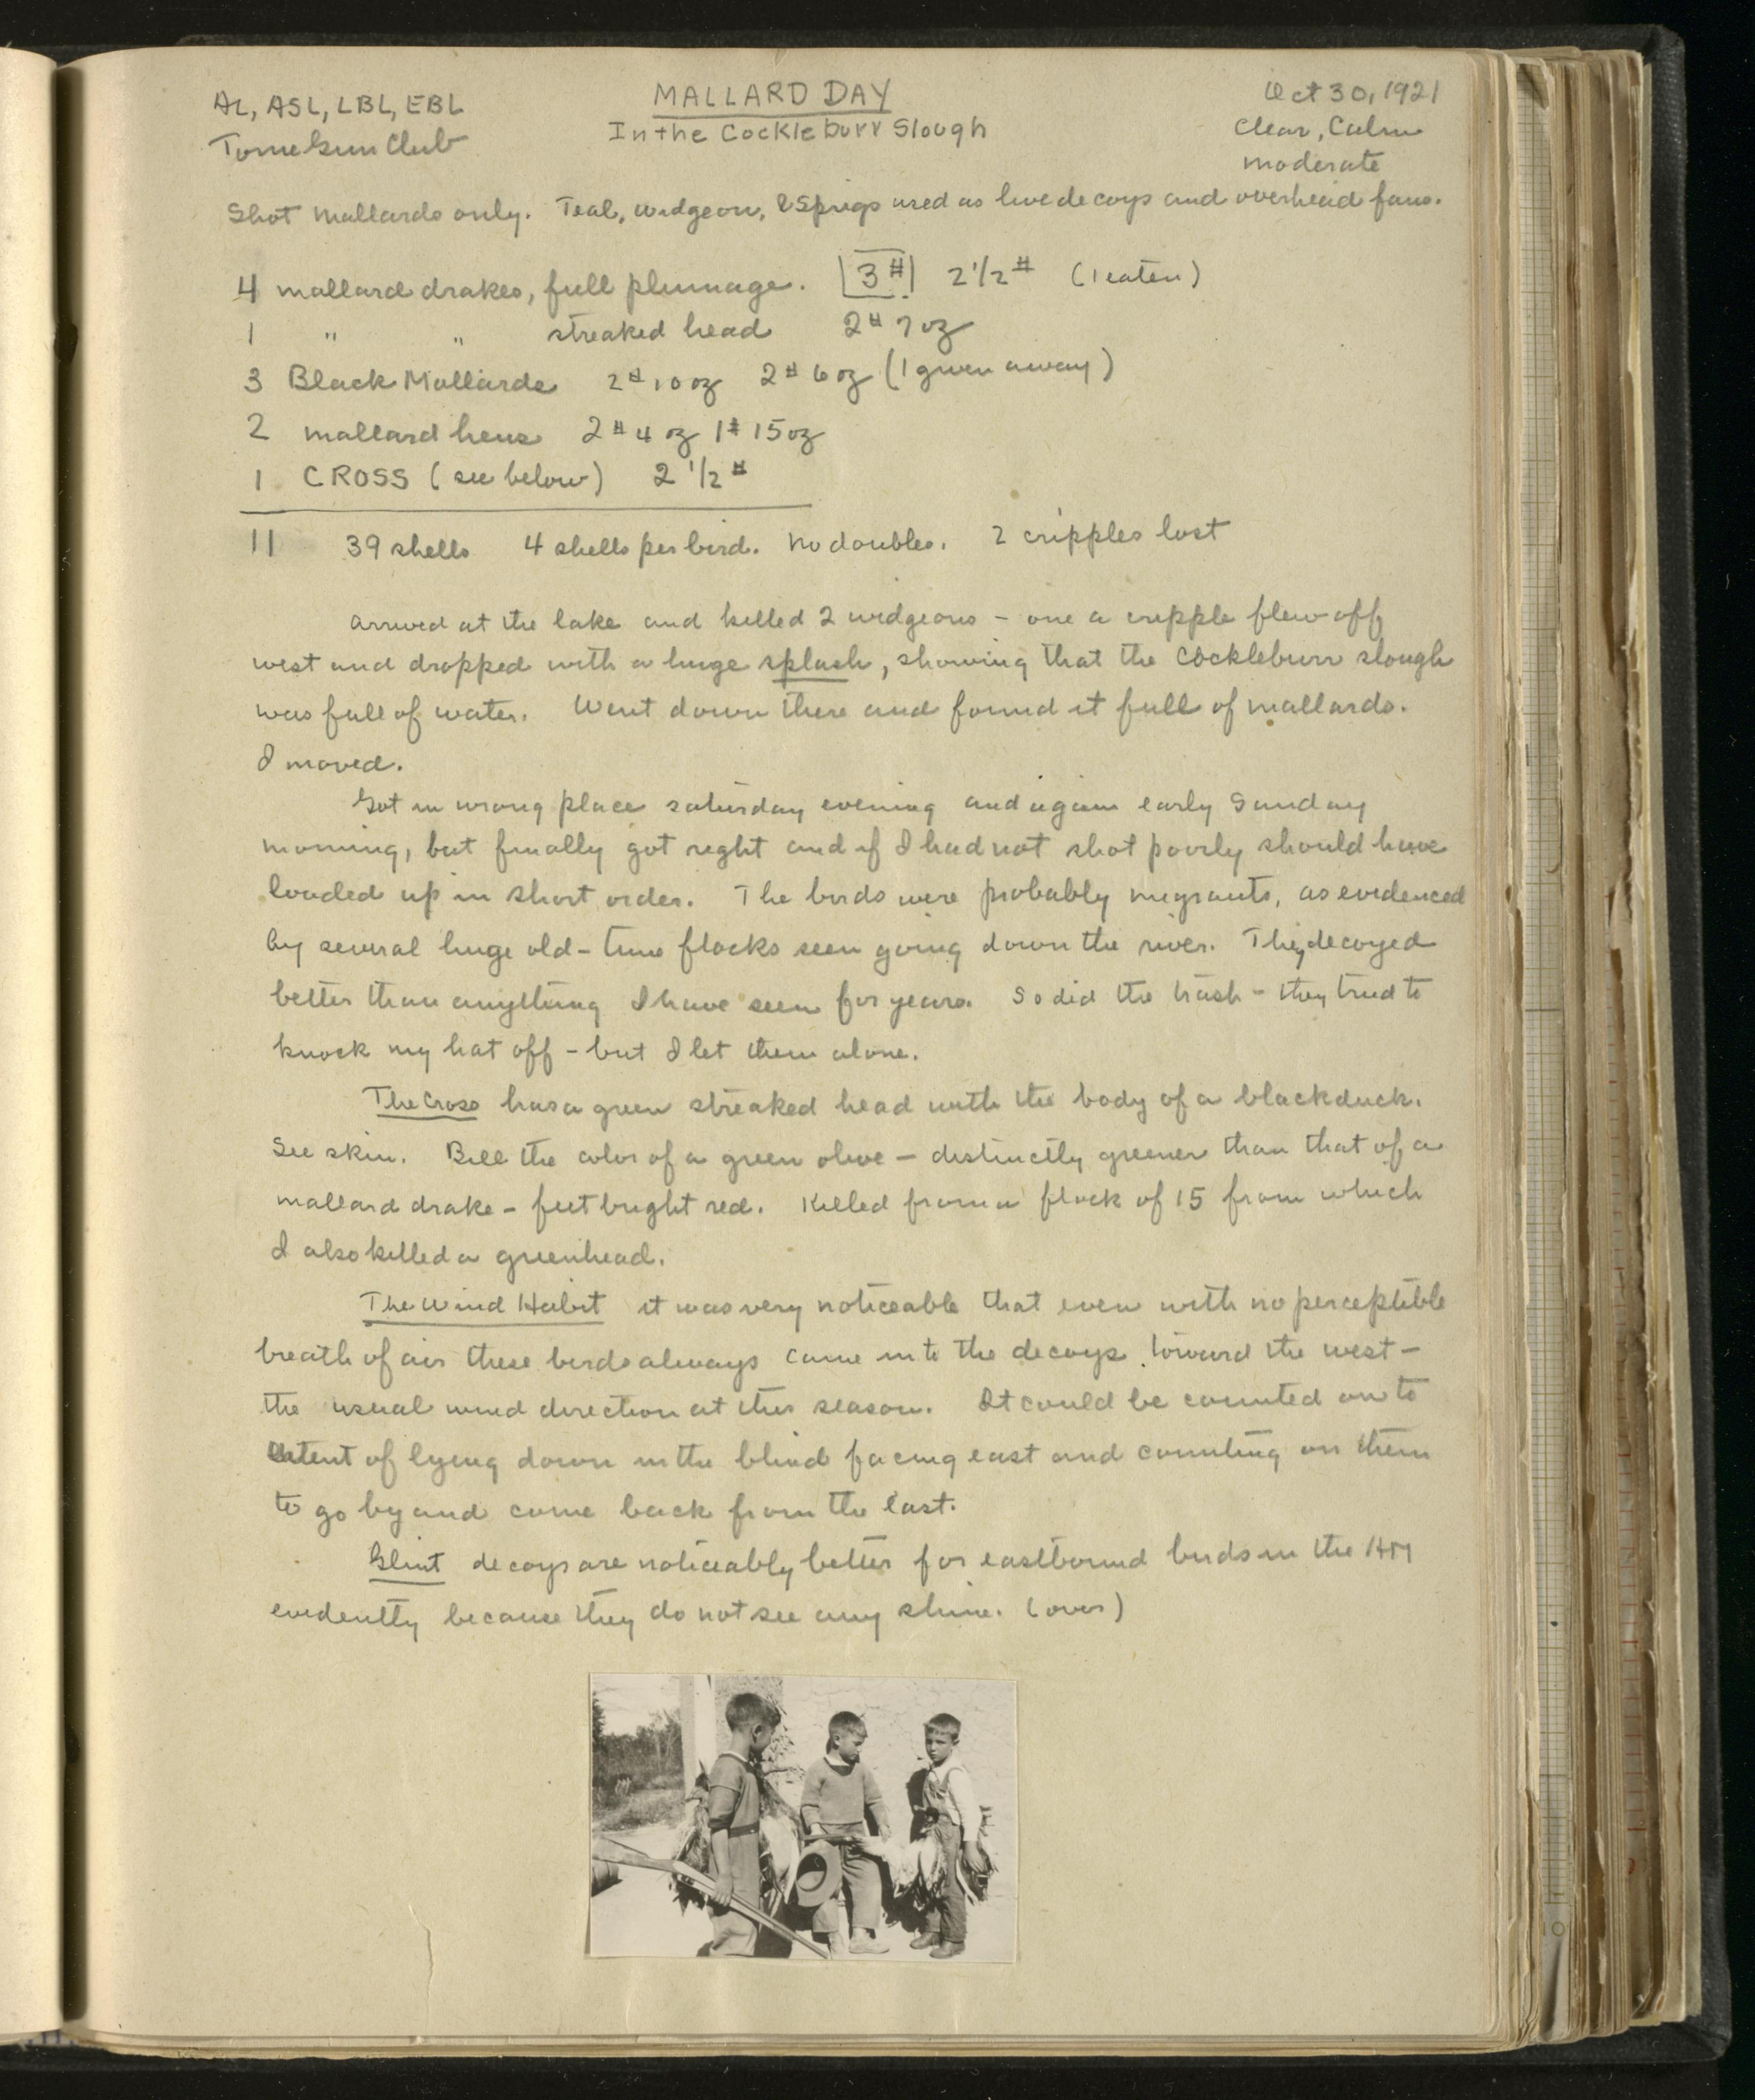 AL, ASL, LBL, EBL
Tome Gun Club
MALLARD DAY
In the Cockleburr Slough
Oct 30, 1921
Clear, Calm
moderate
Shot mallards only. Teal, widgeon, & Sprigs used as live decoys and overhead fans.
4 mallard drakes, full plumage. 3# 2 1/2# (1 eaten)
1 " " streaked head 2# 7 oz
3 Black Mallards 2# 10 oz 2# 6 oz (1 given away)
2 mallard hens 2# 4 oz 1# 15 oz
1 CROSS (see below) 2 1/2#
11 39 shells 4 shells per bird. No doubles. 2 cripples lost
Arrived at the lake and killed 2 widgeons – one a cripple flew off
west and dropped with a huge splash, showing that the Cockleburr slough
was full of water. Went down there and found it full of mallards.
I moved.
Got in wrong place Saturday evening and again early Sunday
morning, but finally got right and if I had not shot poorly should have
loaded up in short order. The birds were probably migrants, as evidenced
by several huge old-time flocks seen going down the river. They decoyed
better than anything I have seen for years. So did the trash – they tried to
knock my hat off – but I let them alone.
The Cross has a green streaked head with the body of a black duck.
See skin. Bill the color of a green olive – distinctly greener than that of a
mallard drake – feet bright red. Killed from a flock of 15 from which
I also killed a greenhead.
The Wind Habit it was very noticeable that even with no perceptible
breath of air these birds always came in to the decoys toward the west –
the usual wind direction at this season. It could be counted on to
extent of lying down in the blind facing east and counting on them
to go by and come back from the east.
Glint decoys are noticeably better for eastbound birds in the
evidently because they do not see any shine. (over)